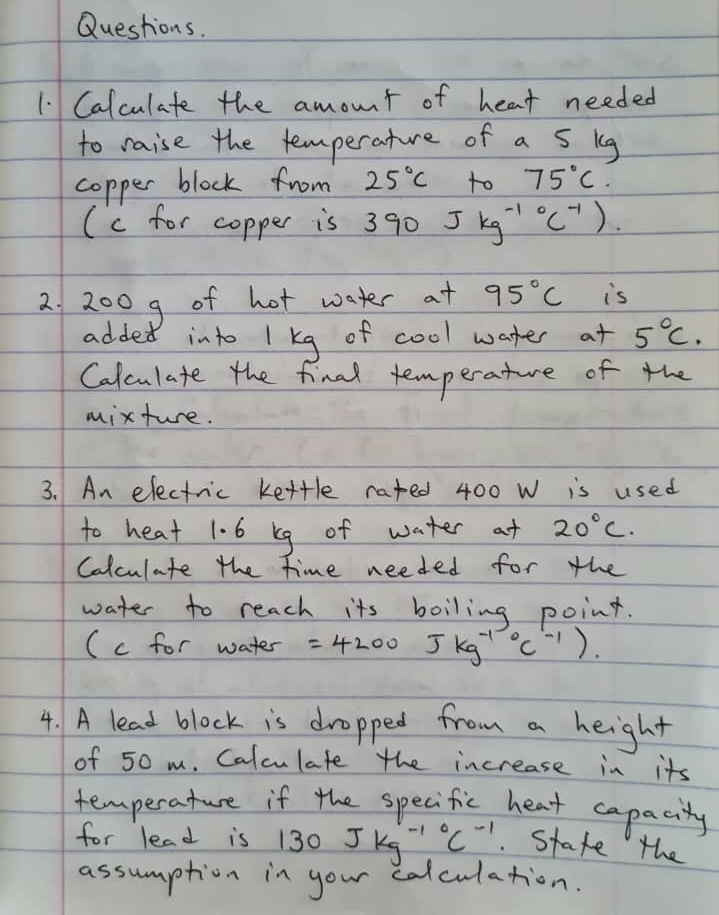 Questions.
1. Calculate the amount of heat needed
to raise the temperature of a 5 kg
copper block from 25°C to 75°C.
(c for copper is 390 J kg⁻¹ °C⁻¹).
2. 200 g of hot water at 95°C is
added into 1 kg of cool water at 5°C.
Calculate the final temperature of the
mixture.
3. An electric kettle rated 400 W is used
to heat 1.6 kg of water at 20°C.
Calculate the time needed for the
water to reach its boiling point.
(c for water = 4200 J kg⁻¹ °C⁻¹).
4. A lead block is dropped from a height
of 50 m. Calculate the increase in its
temperature if the specific heat capacity
for lead is 130 J kg⁻¹ °C⁻¹. State the
assumption in your calculation.